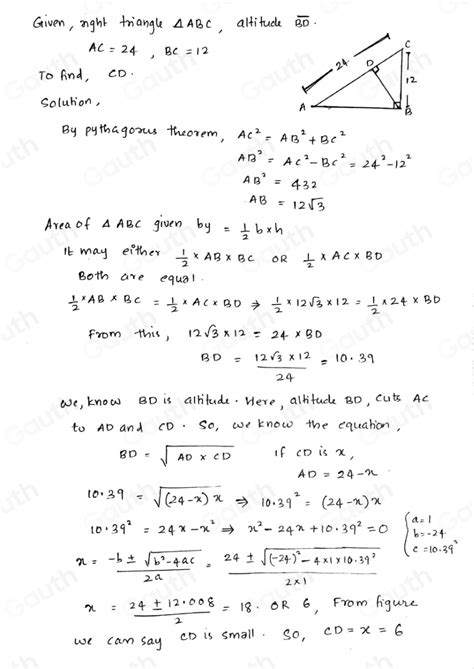 Given, right triangle △ABC, altitude BD.
AC = 24 , BC = 12
To find, CD.
Solution,
24
C
D
12
A
B
By pythagorus theorem, AC² = AB² + BC²
AB² = AC² - BC² = 24² - 12²
AB² = 432
AB = 12√3
Area of △ ABC given by = 1/2 b × h
It may either 1/2 × AB × BC OR 1/2 × AC × BD
Both are equal.
1/2 × AB × BC = 1/2 × AC × BD ⇒ 1/2 × 12√3 × 12 = 1/2 × 24 × BD
From this, 12√3 × 12 = 24 × BD
BD = 12√3 × 12 / 24 = 10.39
we, know BD is altitude. Here, altitude BD, cuts AC
to AD and CD. So, we know the equation,
BD = √(AD × CD) if CD is x,
AD = 24 - x
10.39 = √((24-x) x) ⇒ 10.39² = (24-x) x
10.39² = 24x - x² ⇒ x² - 24x + 10.39² = 0
a = 1
b = -24
c = 10.39²
x = -b ± √(b² - 4ac) / 2a = 24 ± √((-24)² - 4×1×10.39²) / 2×1
x = 24 ± 12.008 / 2 = 18. OR 6, From figure
we can say CD is small. So, CD = x = 6
Gauth